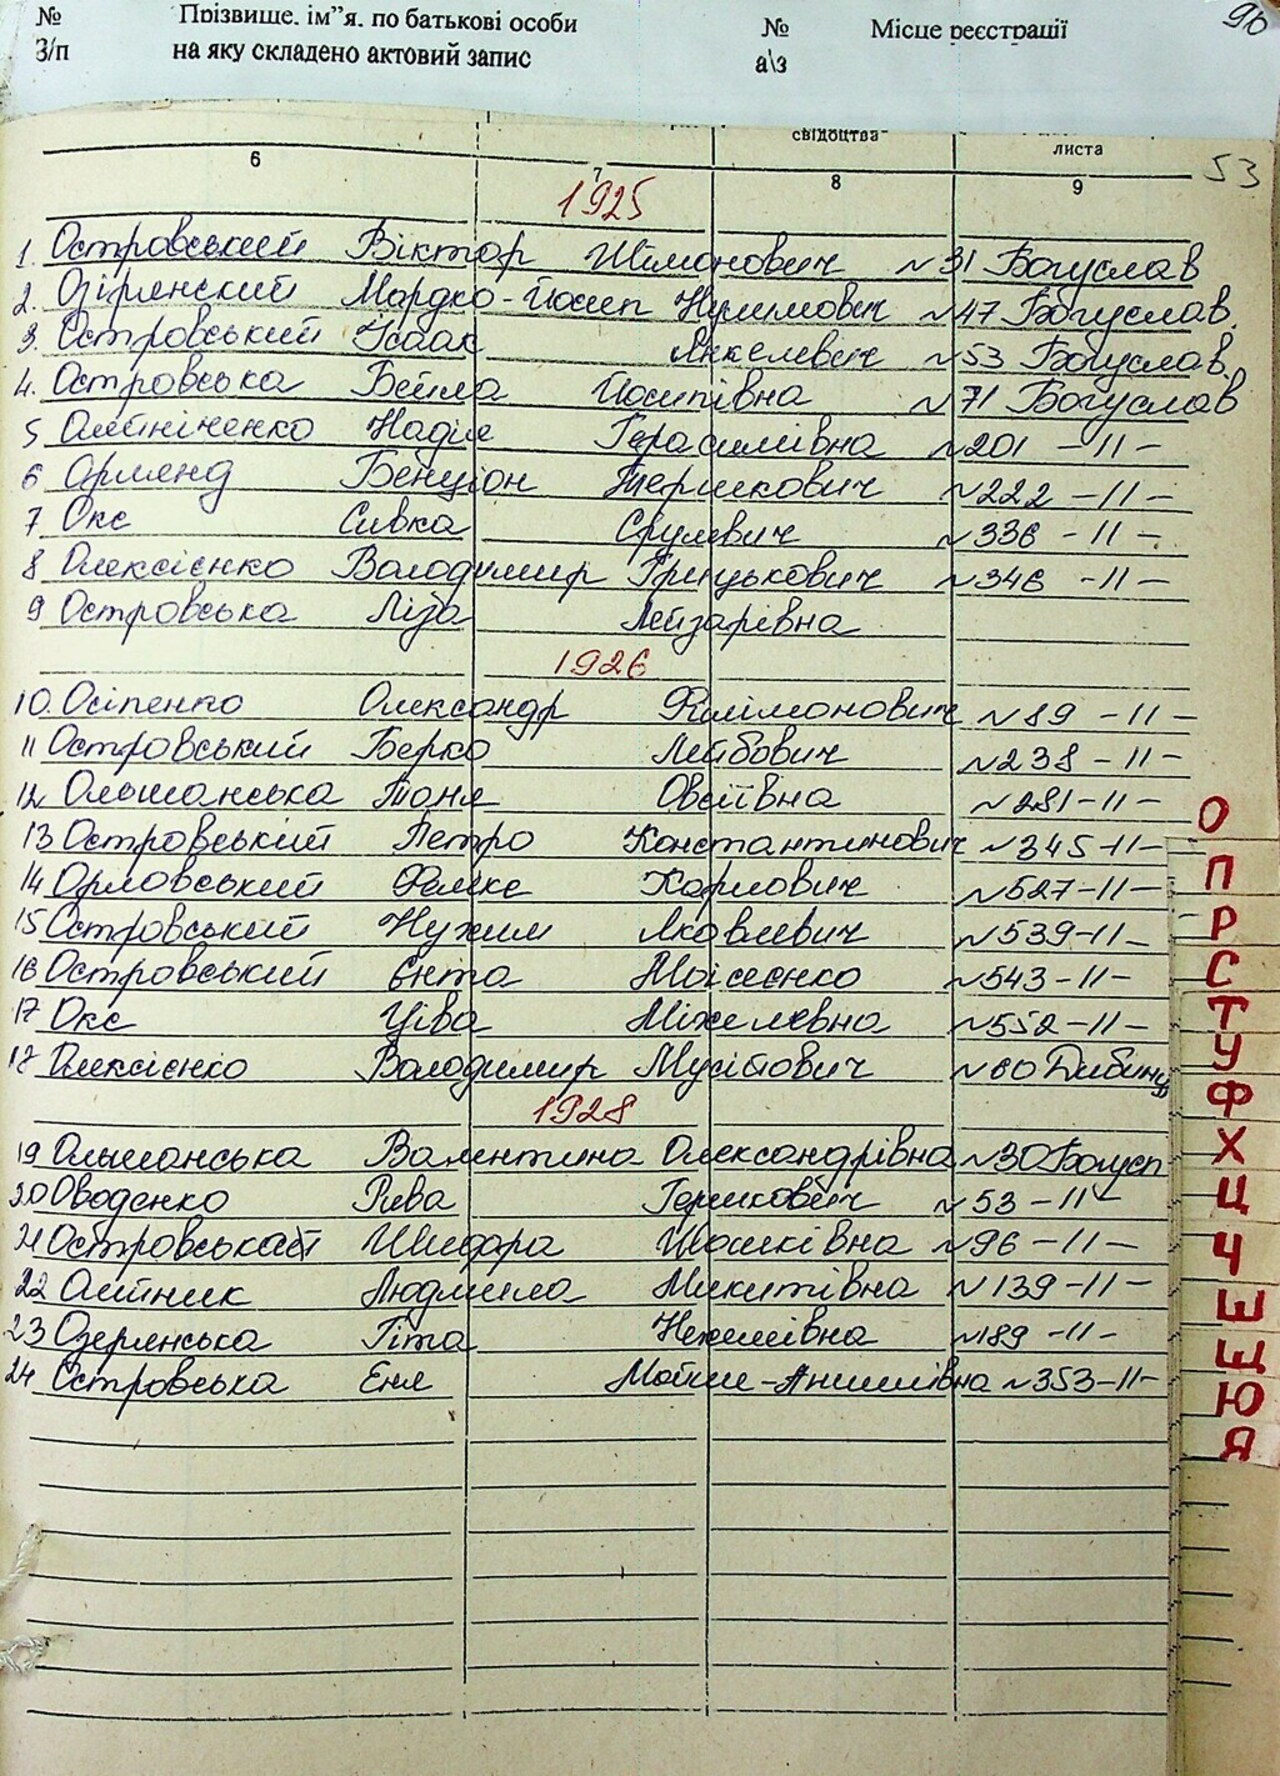 № Прізвище, ім"я, по батькові особи № Місце реєстрації 90
З/п на яку складено актовий запис а\з
свідоцтва листа
6 7 8 9 53
1925
1. Островський Віктор Шімонович №31 Богуслав
2. Озірянский Мардко-Йосип Нухимович №47 Богуслав
3. Островський Ісаак Янкелевич №53 Богуслав
4. Островська Бейла Йосипівна №71 Богуслав
5 Олійніченко Надія Герасимівна №201 -11-
6 Орлянд Бенціон Гершкович №222 -11-
7 Окс Сивка Срулевич №336 -11-
8 Олексієнко Володимир Грицькович №346 -11-
9 Островська Ліза Лейзарівна
1926
10. Осіпенко Олександр Філімонович №89 -11-
11 Островський Берко Лейбович №238 -11-
12 Ольшанська Таня Овсіївна №281-11-
13 Островський Петро Константинович №345-11-
14 Орловський Фелікс Карлович №527-11-
15 Островський Нухим Яковлевич №539-11-
16 Островський Єнта Моісеєнко №543-11-
17 Окс Ціва Міхелевна №552-11-
18 Олексієнко Володимир Мусійович №60 Дибинці
1928
19 Ольшанська Валентина Олександрівна №30 Богусл
20 Оводенко Рива Гершкович №53 -11-
21 Островська Шифра Шошківна №96 -11-
22 Олійник Людмила Микитівна №139-11-
23 Озерянська Гіта Нехемівна №189 -11-
24 Островська Еня Мойше-Аншелівна №353-11-
О
П
Р
С
Т
У
Ф
Х
Ц
Ч
Ш
Щ
Ю
Я